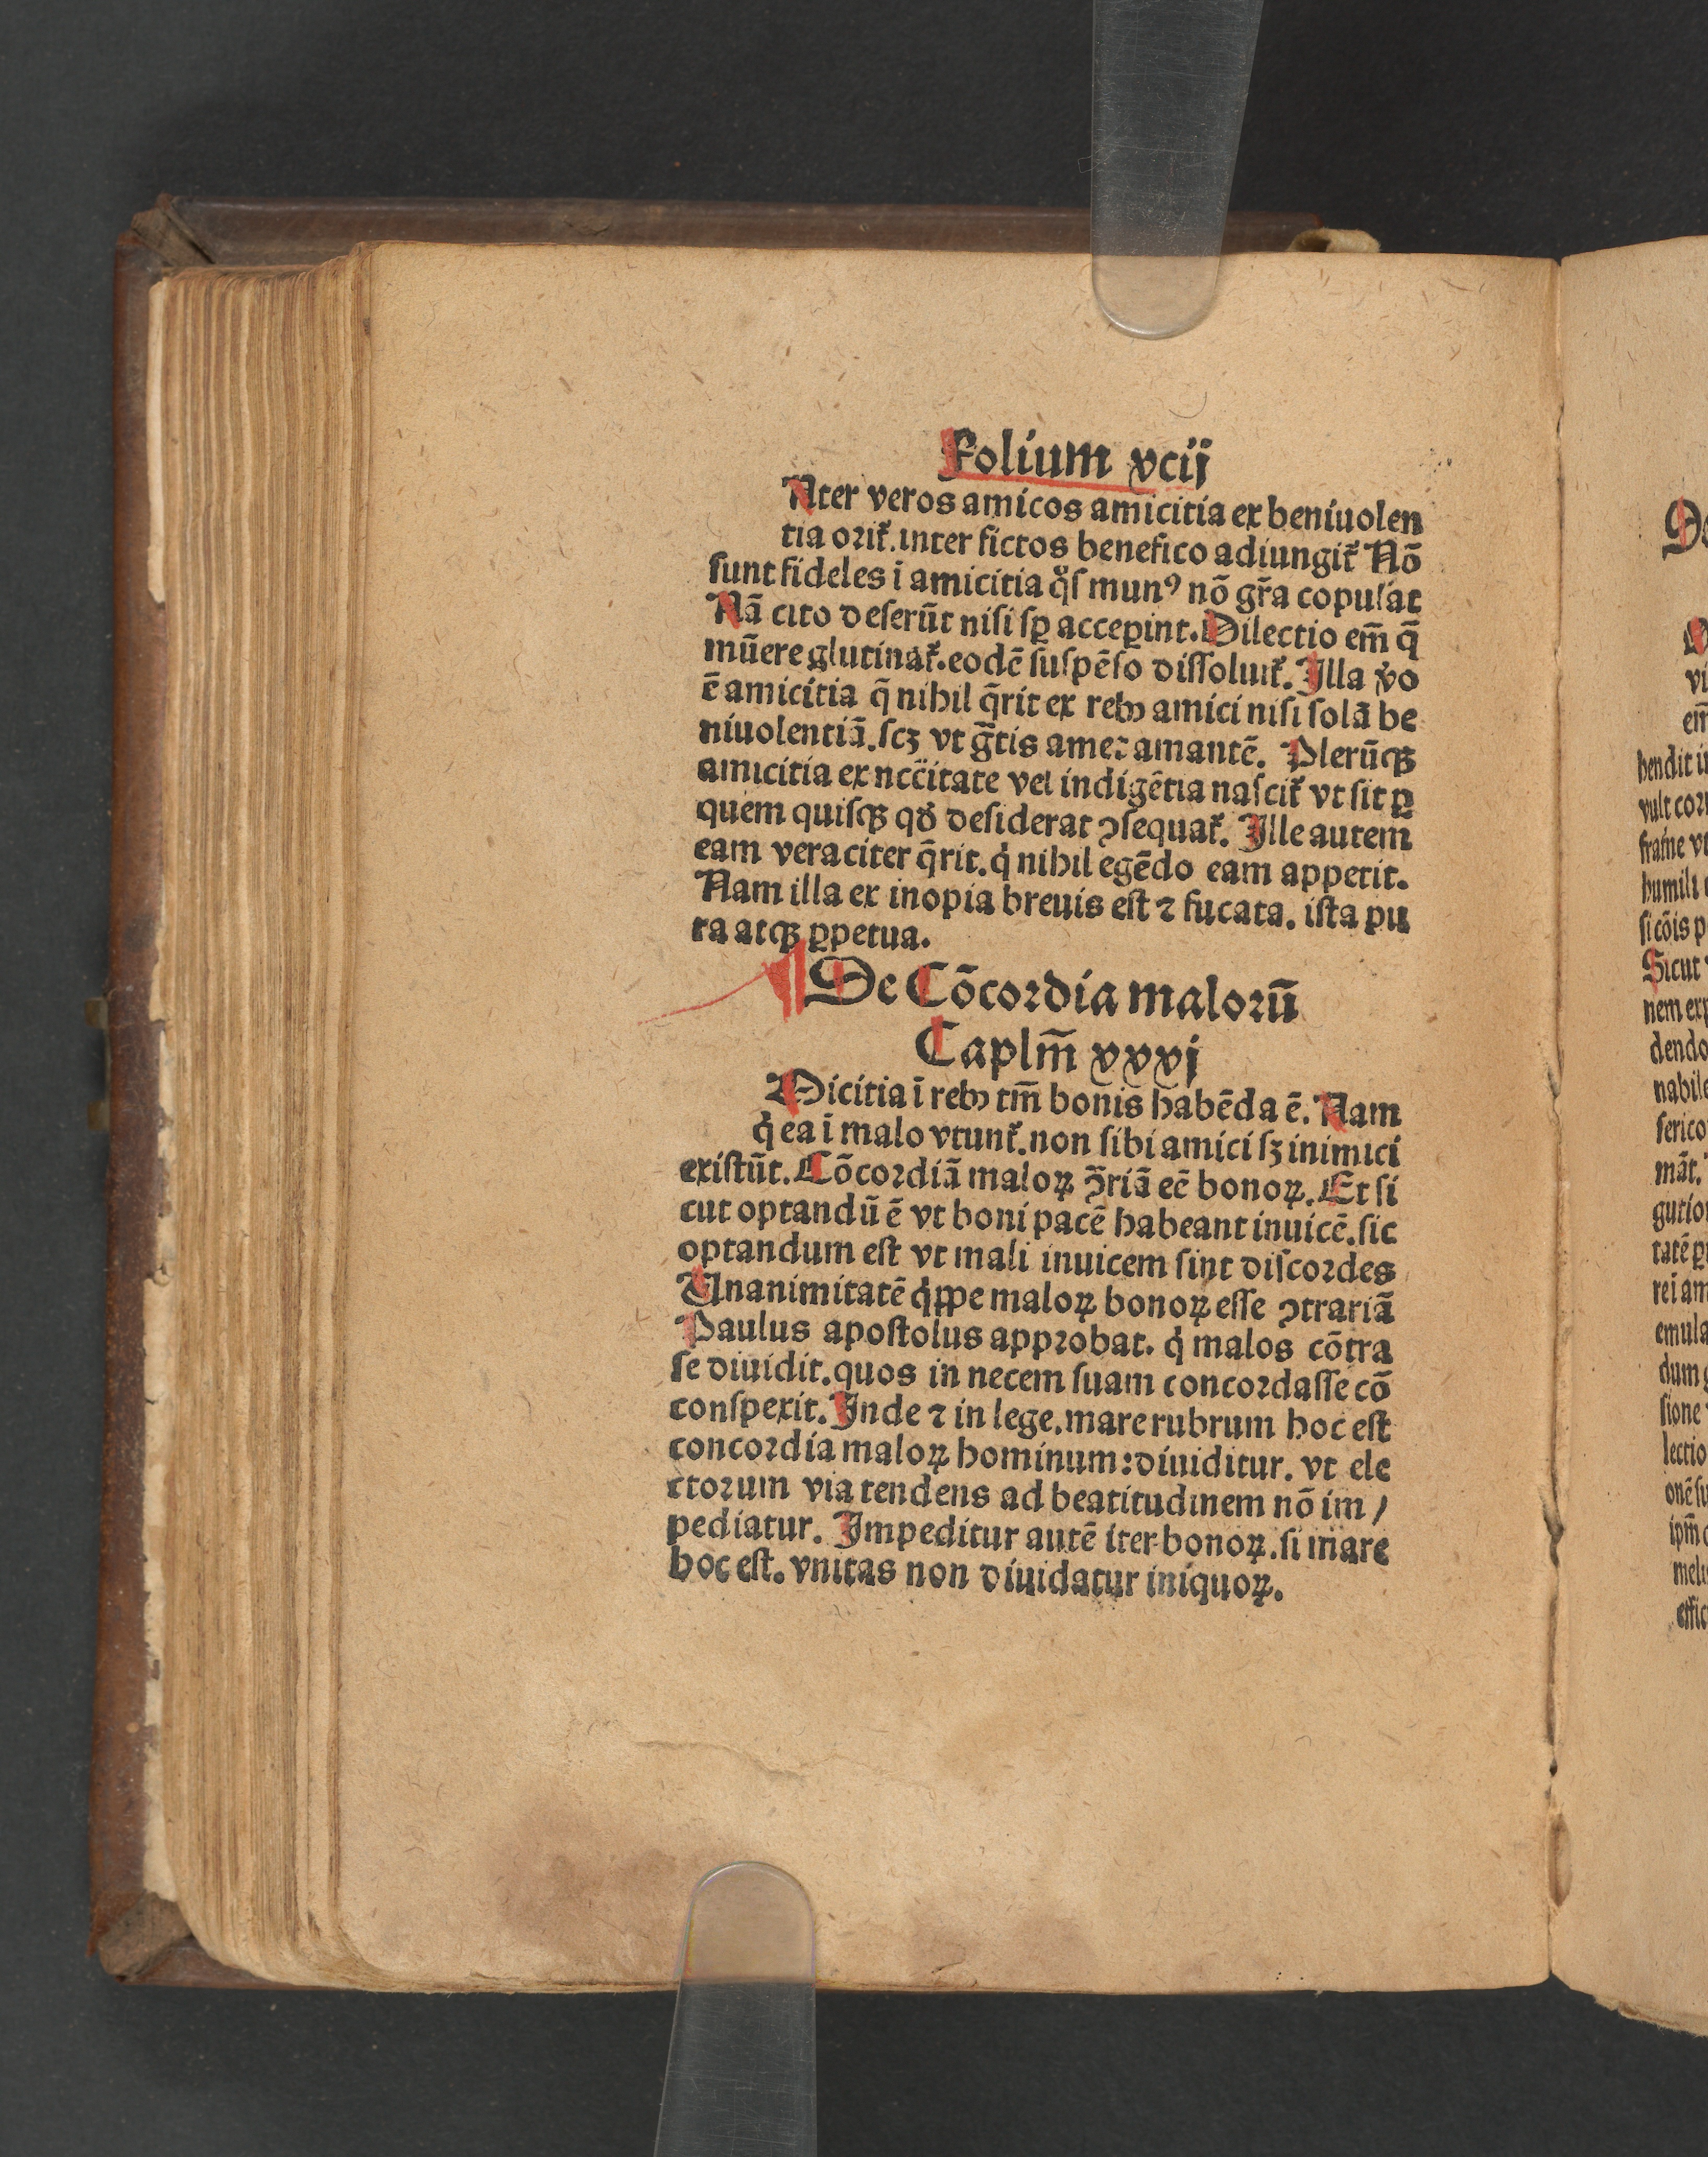 Folium xcij
Nter veros amicos amicitia ex beniuolen
tia orit᷑.inter fictos benefico adiungit᷑ Nõ
ſunt fideles ĩ amicitia qͦſ munꝰ nõ gr̃a copulat
Nã cito deſerũt niſi ſꝑ acceꝑint.Dilectio em̃ q̃
mũere glutinat᷑.eodẽ ſuſpẽſo diſſoluit᷑. Illa ꝟo
ẽ amicitia q̃ nihil q̃rit ex rebꝰ amici niſi ſolã be
niuolentiã.ſcꝫ vt g̃tis amet amantẽ. Plerũqꝫ
amicitia ex ncc̃itate vel indigẽtia naſcit᷑ vt ſit ꝑ
quem quiſqꝫ qđ deſiderat ꝯſequat᷑. Ille autem
eam veraciter q̃rit.qͥ nihil egẽdo eam appetit.
Nam illa ex inopia breuis eſt ⁊ fucata. iſta pu
ra atqꝫ ꝑpetua.
¶ De Cõcordia malorũ
Caplm̃ xxxj
Micitia ĩ rebꝰ tm̃ bonis habẽda ẽ. Nam
qͥ ea ĩ malo vtunt᷑.non ſibi amici ſꝫ inimici
exiſtũt.Cõcordiã maloꝝ ꝯ̃riã eẽ bonoꝝ.Et ſi
cut optandũ ẽ vt boni pacẽ habeant inuicẽ.ſic
optandum eſt vt mali inuicem ſint diſcordes
Unanimitatẽ qͥppe maloꝝ bonoꝝ eſſe ꝯtrariã
Paulus apoſtolus approbat. qͥ malos cõtra
ſe diuidit.quos in necem ſuam concordaſſe cõ
conſpexit. Inde ⁊ in lege.mare rubrum hoc eſt
concordia maloꝝ hominum:diuiditur. vt ele
ctorum via tendens ad beatitudinem nõ im /
pediatur. Impeditur autẽ iter bonoꝝ.ſi mare
hoc eſt. vnitas non diuidatur iniquoꝝ.